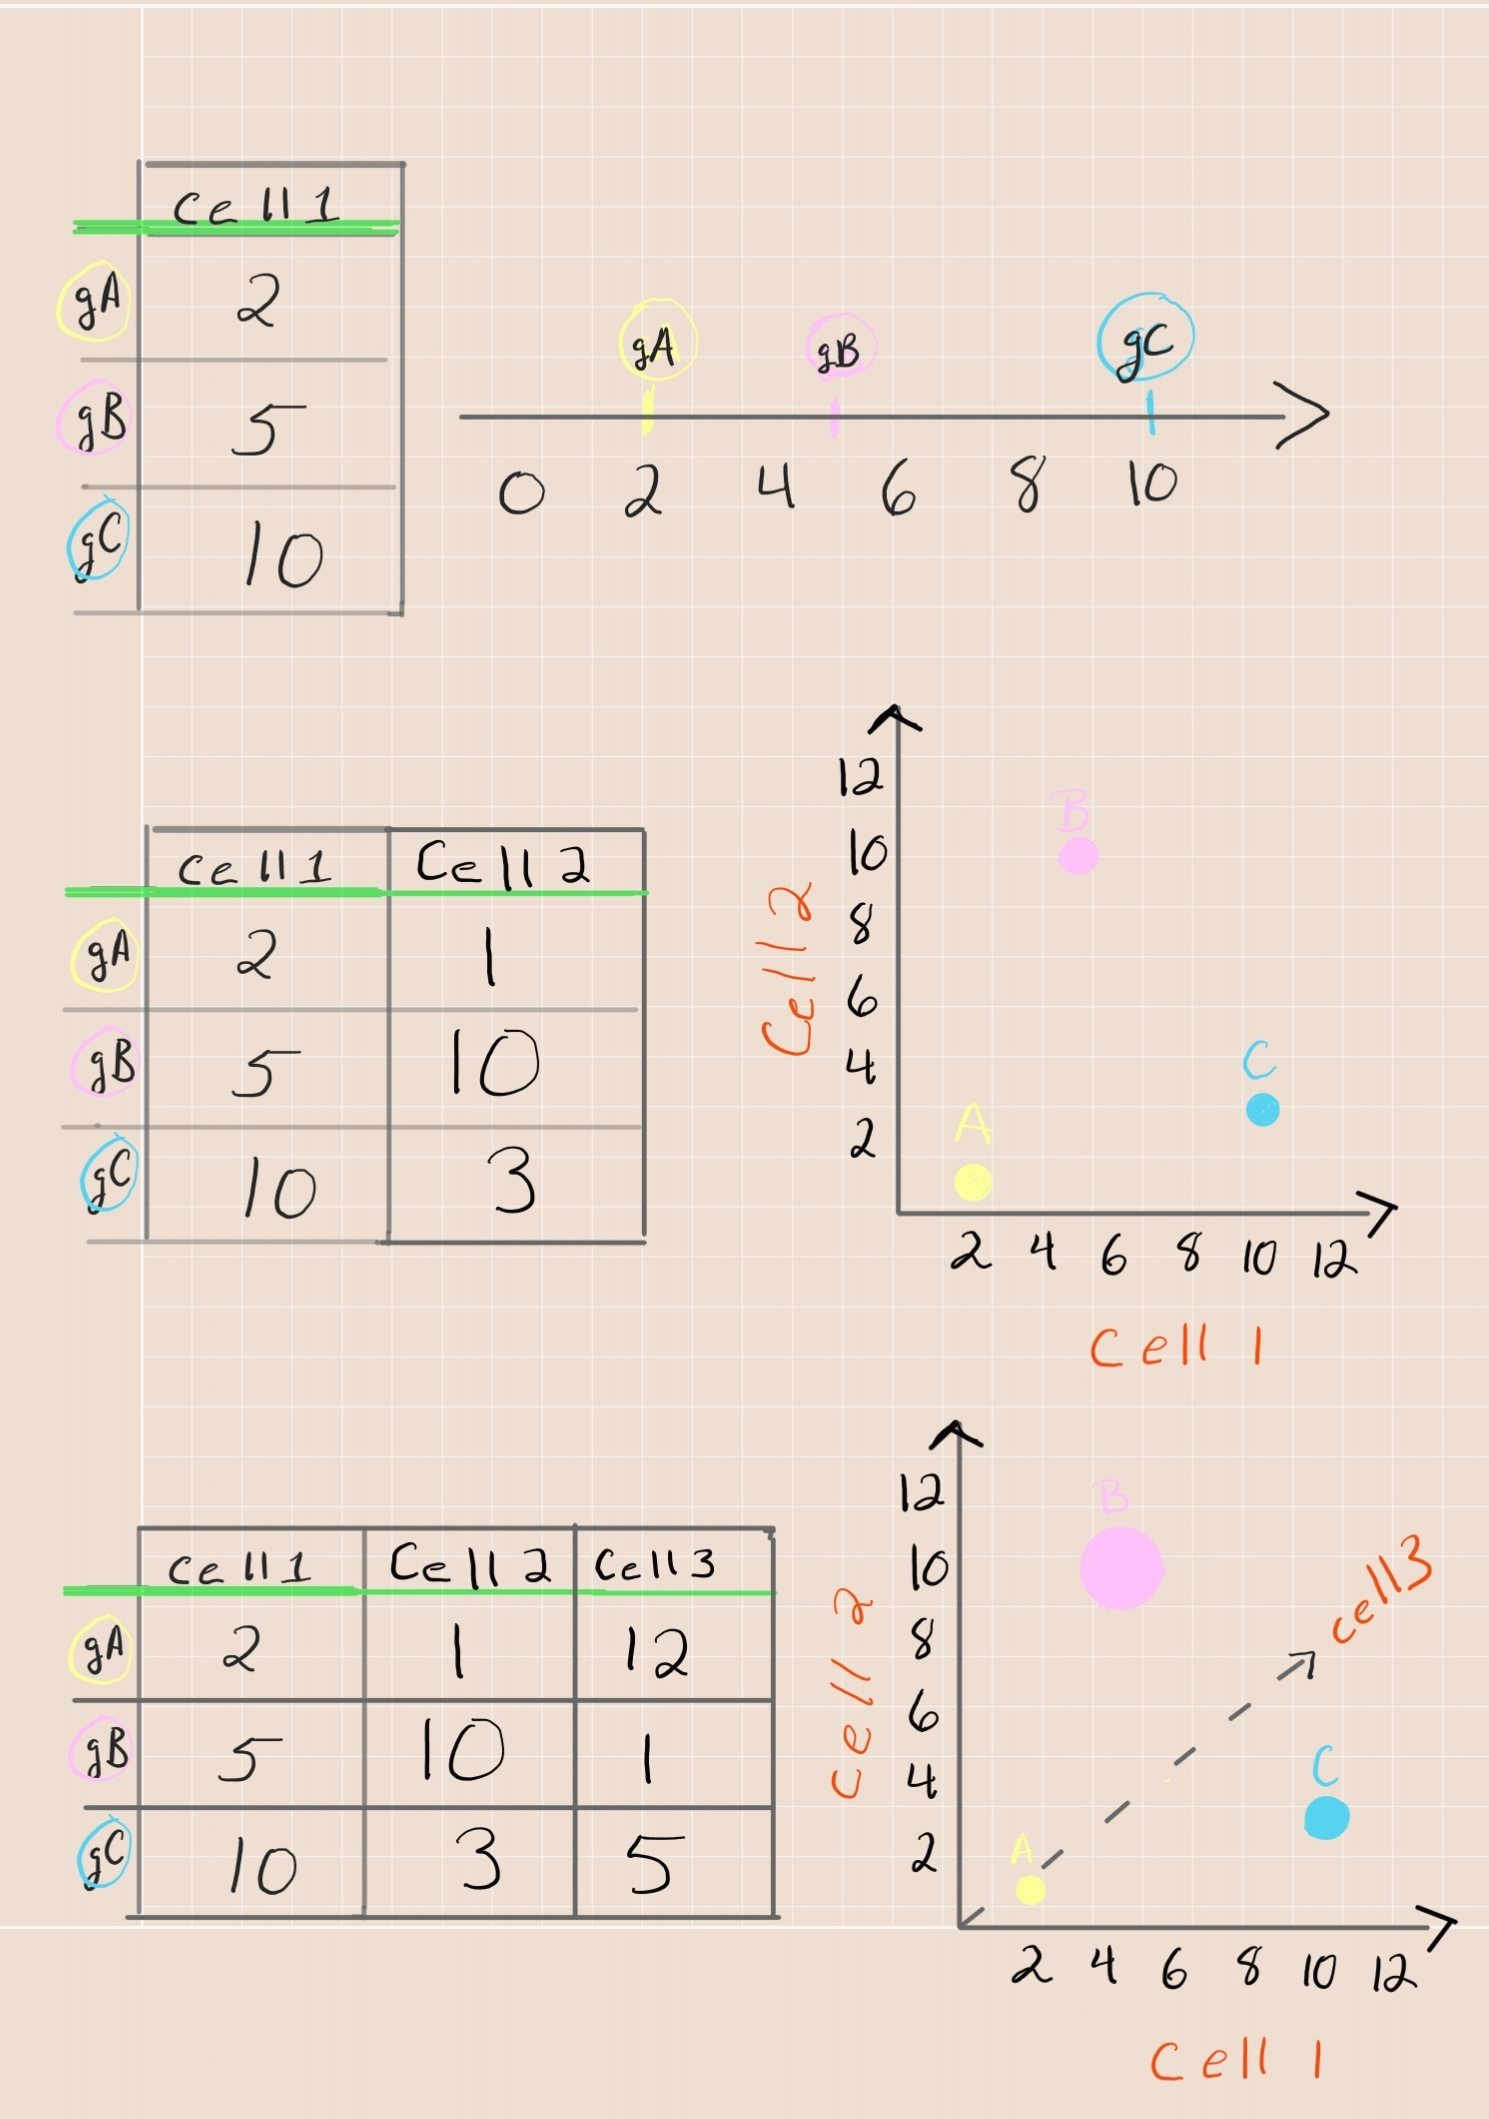 cell 1
gA 2
gB 5
gC 10
gA gB gC
0 2 4 6 8 10
cell 1 Cell 2
gA 2 1
gB 5 10
gC 10 3
12
10
8
6
4
2
Cell 2
B
C
A
2 4 6 8 10 12
Cell 1
cell 1 Cell 2 Cell 3
gA 2 1 12
gB 5 10 1
gC 10 3 5
12
10
8
6
4
2
cell 2
B
cell 3
C
A
2 4 6 8 10 12
Cell 1